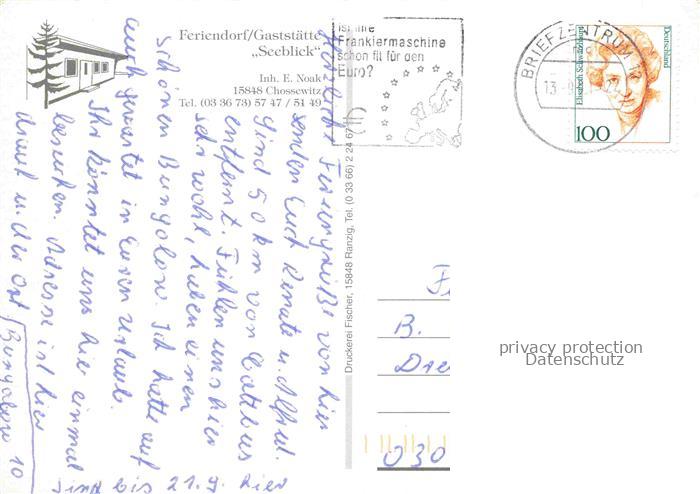 Feriendorf/Gaststätte
„Seeblick“
Inh. E. Noak
15848 Chossewitz
Tel. (03 36 73) 57 47 / 51 49
Ist Ihre
Frankiermaschine
schon fit für den
Euro?
BRIEFZENTRUM 1
13.-9
Elisabeth Schwarzhaupt
Deutschland
100
Herzliche Feriengrüße von hier
senden Euch Renate u. Alfred.
Sind 50 km von Cottbus
entfernt. Fühlen uns hier
sehr wohl, haben einen
schönen Bungalow. Ich hatte auf
euch gewartet in Euren Urlaub.
Ihr könntet uns hier einmal
besuchen. Adresse ist hier
drauf u. der Ort
Bungalow 10
Sind bis 21.9. hier
Druckerei Fischer, 15848 Ranzig, Tel. (0 33 66) 2 24 67
F
B.
Dre
030
privacy protection
Datenschutz